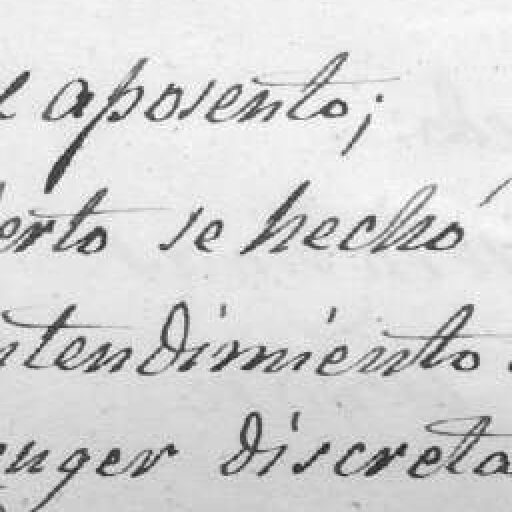 aposento;
se hechó
ntendimiento
discreta